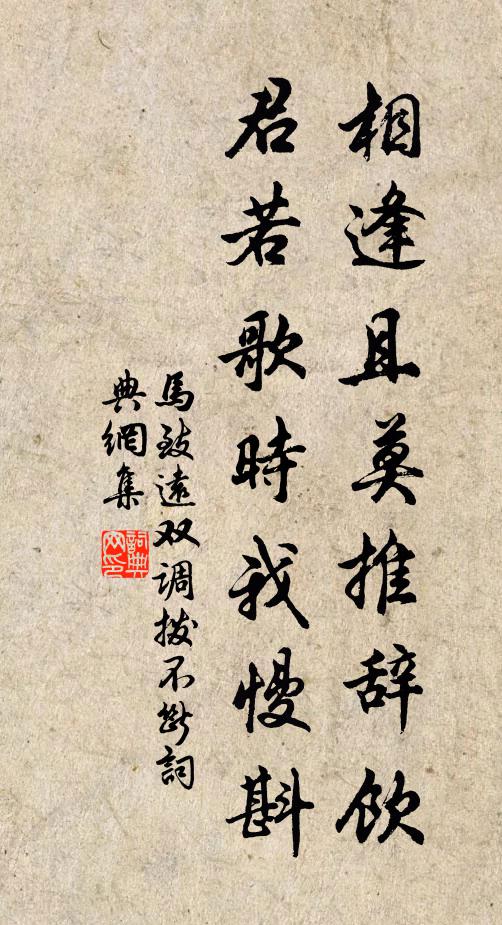 相逢且莫推辞饮
君若歌時我慢斟
馬致遠双调拨不断詞
典網集
詞典
网印